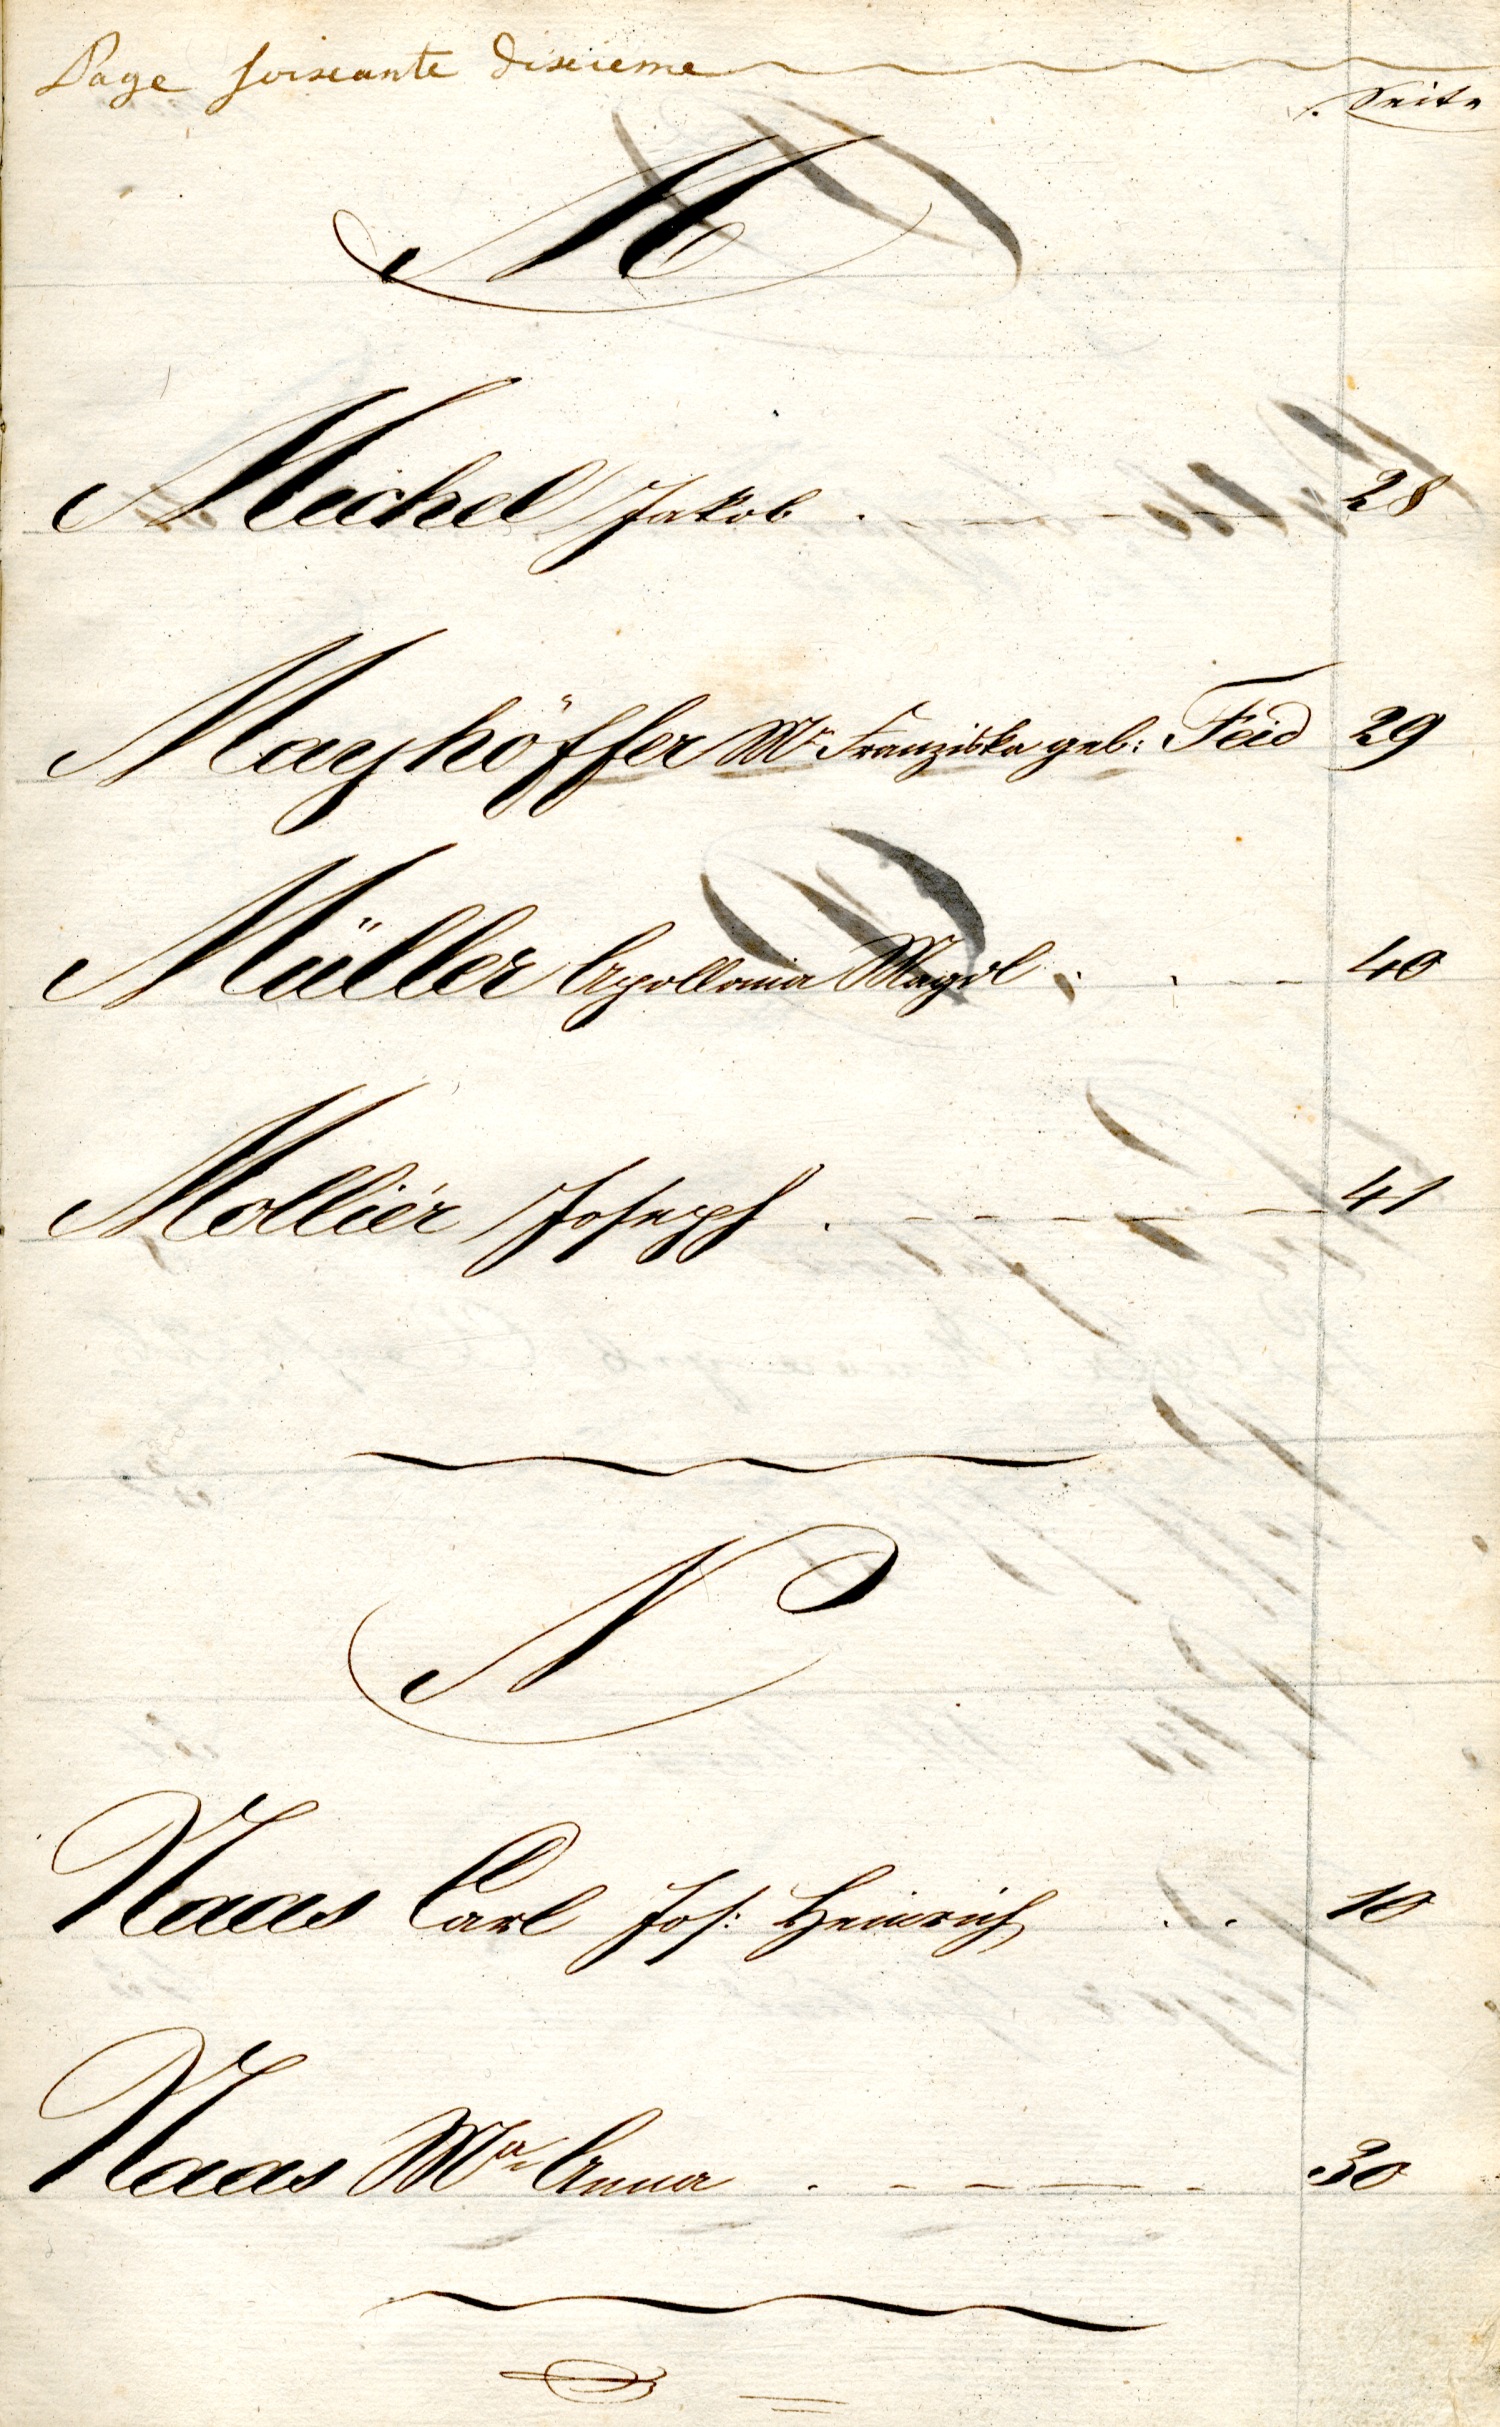 Page soixante dixieme
Seite
M
Michel Jakob 28
Mayhöffer Mr Franziska geb: Feid 29
Müller Apollonia Magdl 40
Molliér Joseph 41
N
Naas Carl Jos: Heinrich 10
Naas Ma Anna 30